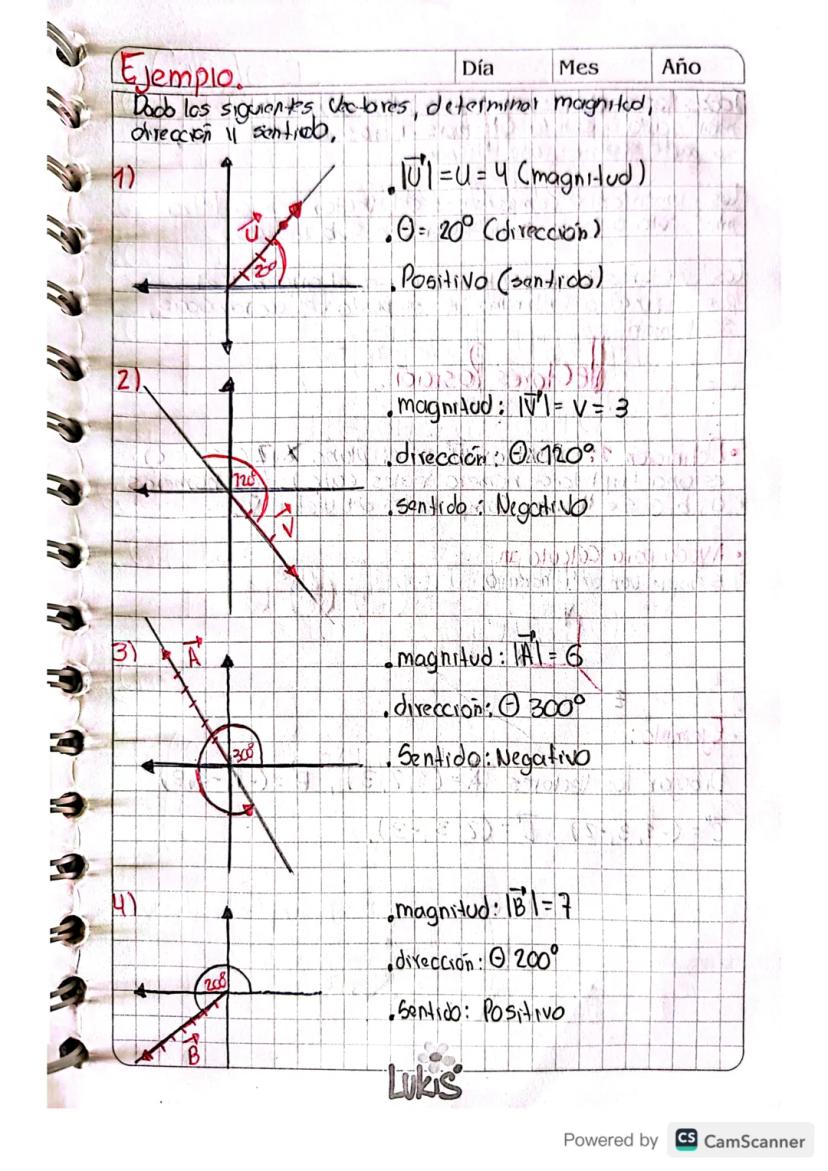 Ejemplo.
Día Mes Año
Dado los siguientes vectores, determinar magnitud,
dirección y sentido.
1)
U
20°
. |U| = U = 4 (magnitud)
. θ = 20° (dirección)
. Positivo (sentido)
2)
120°
V
. magnitud: |V| = V = 3
. dirección: θ 120°
. sentido: Negativo
3)
A
300°
. magnitud: |A| = 6
. dirección: θ 300°
. Sentido: Negativo
4)
200°
B
. magnitud: |B| = 7
. dirección: θ 200°
. Sentido: Positivo
LUKIS
Powered by CS CamScanner